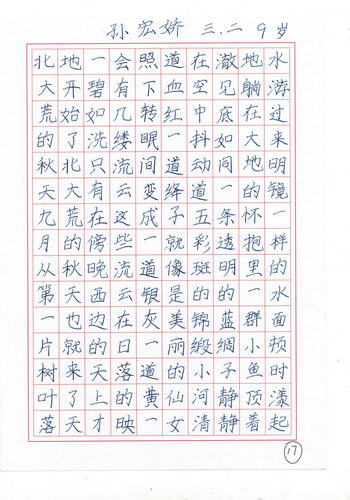 孙宏娇 三.二 9岁
北大荒的秋天九月从第一片树叶落
地开始了北大荒的秋天也就来了天
一碧如洗只有在傍晚西边的天上才
会有几缕流云这些流云在日落的映
照下转眠间变成一道银灰一道黄一
道血红一道绛子就像是美丽的仙女
在空中抖动道五彩斑的锦缎小河清
澈见底如同一条透明的蓝绸子静静
地躺在大地的怀抱里一群小鱼顶着
水游过来明镜一样的水面顿时漾起
17